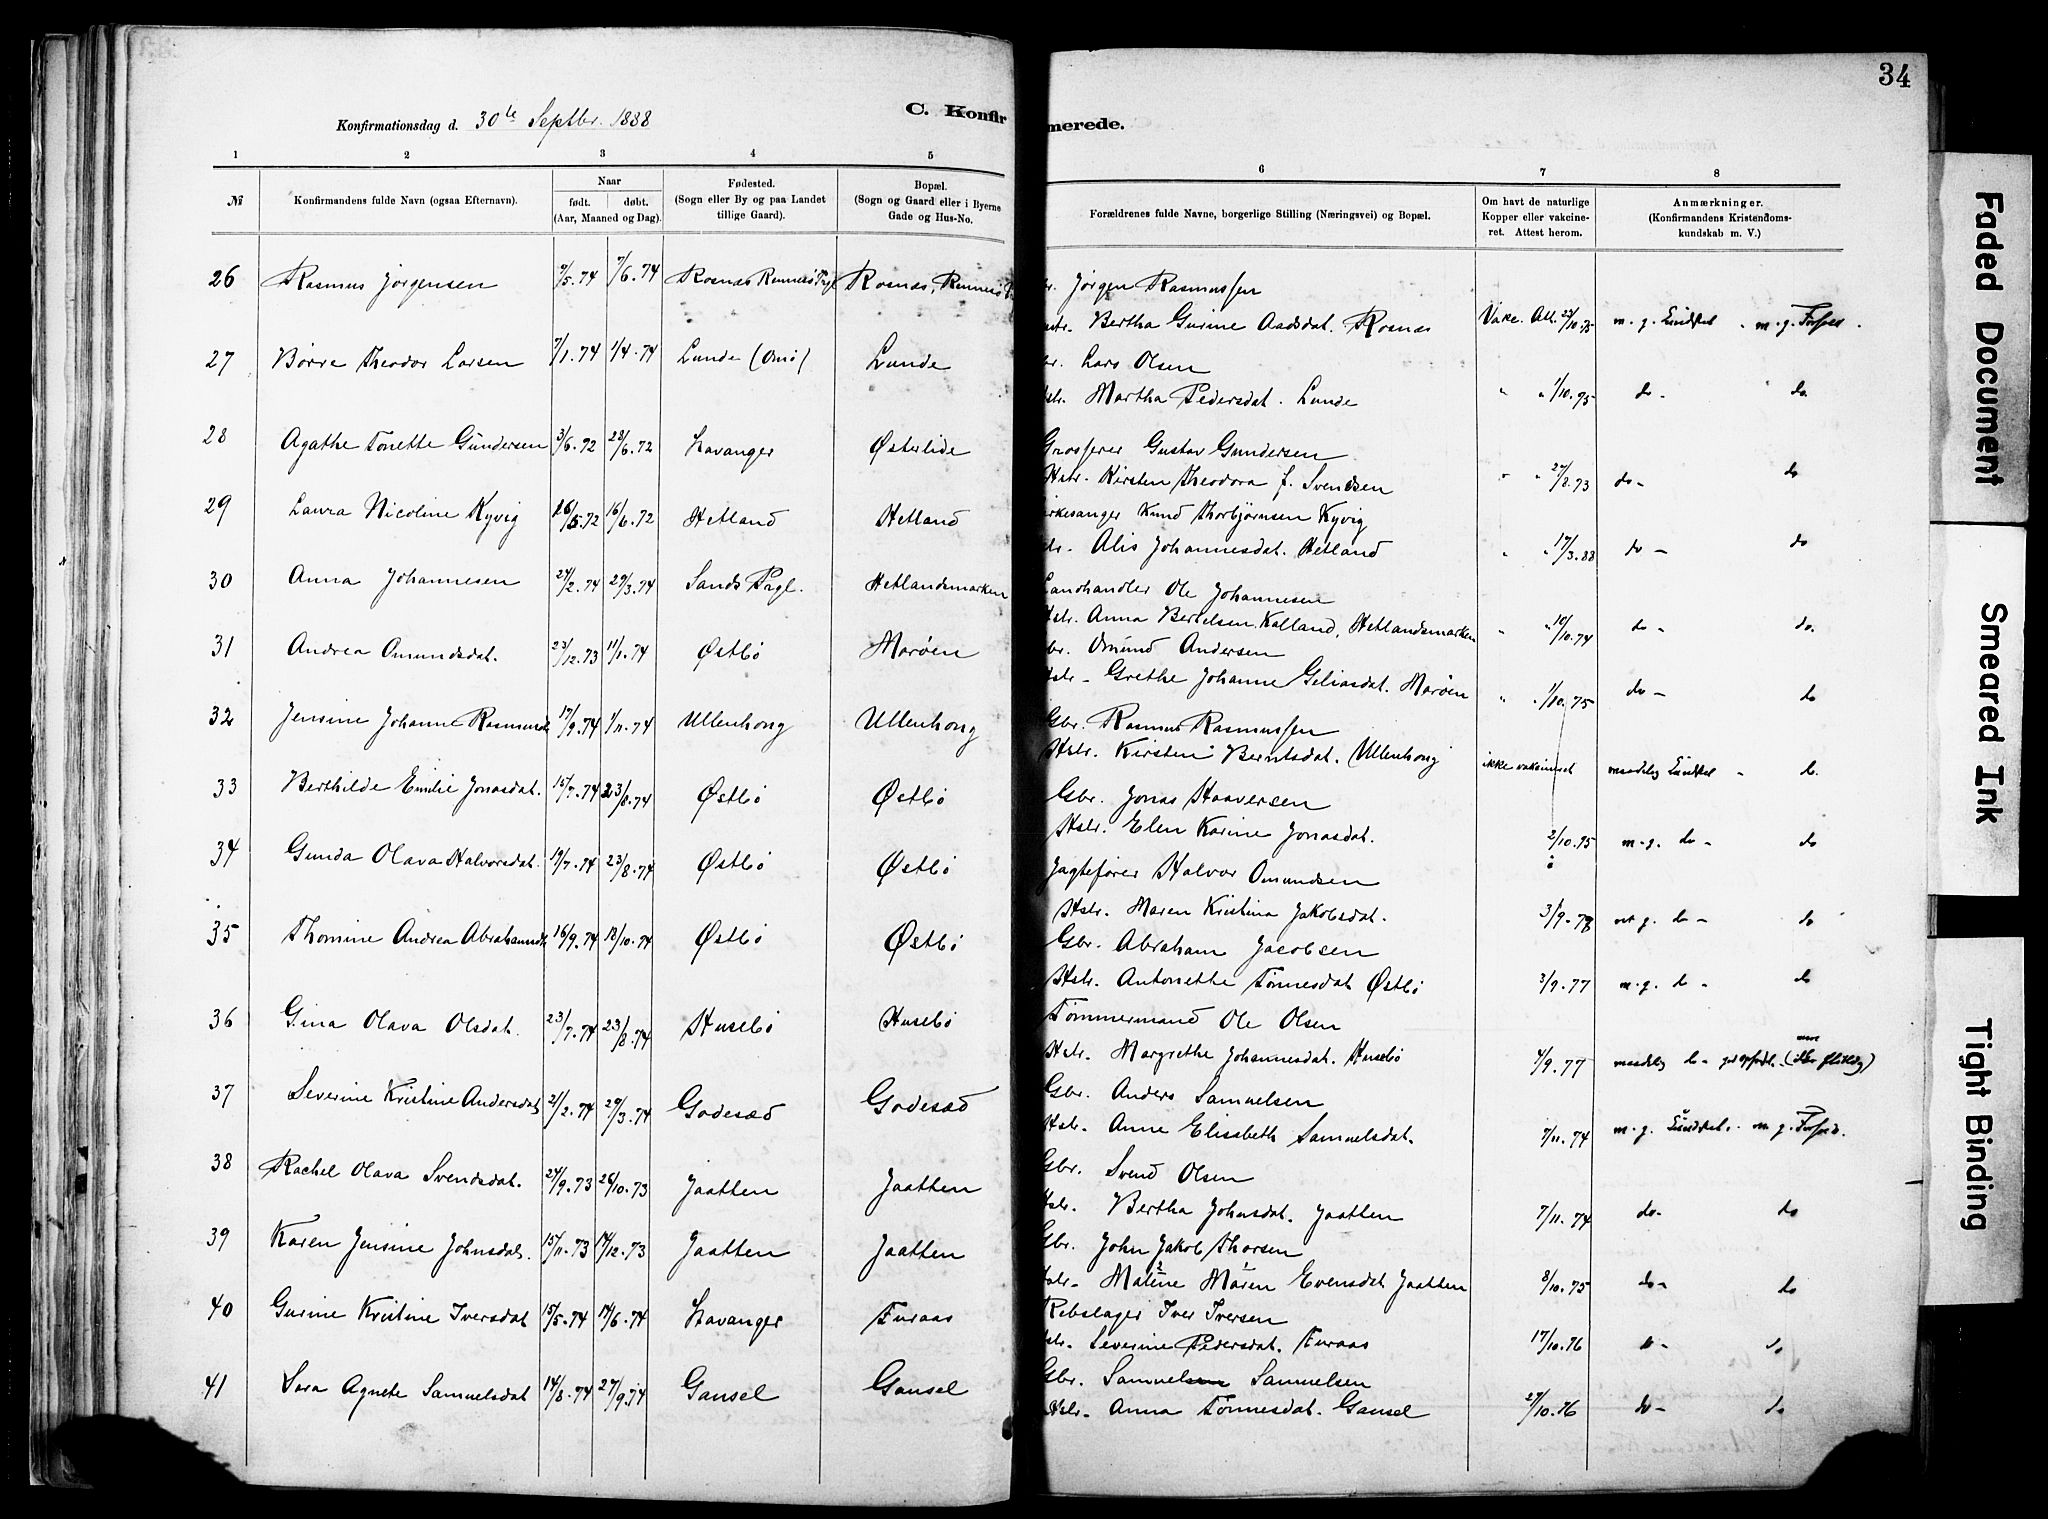 34
Konfirmationsdag d. 30te Septbr. 1888 C. Konfirmerede.
1 2 3 4 5 6 7 8
№ Konfirmandens fulde Navn (ogsaa Efternavn). Naar født. døbt. (Aar, Maaned og Dag). Fødested. (Sogn eller By og paa Landet tillige Gaard). Bopæl. (Sogn og Gaard eller i Byerne Gade og Hus-No. Forældrenes fulde Navne, borgerlige Stilling (Næringsvei) og Bopæl. Om havt de naturlige Kopper eller vakcineret. Attest herom. Anmærkninger. (Konfirmandens Kristendomskundskab m. V.)
26 Rasmus Jørgensen 7/5.74 7/6.74 Rosnæs Rennesø Prgl Rosnæs, Rennesø Jørgen Rasmussen
Bertha Gurine Aadsdat. Rosnæs Vakc. Att. 27/10.75 m.g. Kundskab m.g. Forhold.
27 Børre Theodor Larsen 7/1.74 1/4.74 Lunde (Omø) Lunde Lars Olsen
Martha Pedersdat. Lunde " " 1/10.75 do- do.
28 Agathe Tonette Gundersen 3/6.72 23/6.72 Stavanger Østerlide Grosserer Gustav Gundersen
Hstr. Kirsten Theodora f. Svendsen " " 27/8.73 do- do
29 Laura Nicoline Kyvig 26/5.72 16/6.72 Hetland Hetland Kirkesanger Knud Thorbjørnsen Kyvig
Alis Johannesdat. Hetland " " 17/3.88 do- do
30 Anna Johannesen 24/2.74 29/3.74 Sands Prgl. Hetlandsmarken Landhandler Ole Johannesen
Hstr. Anna Bertelsen Kalland, Hetlandsmarken " " 10/10.74 do- do.
31 Andrea Omundsdat. 23/12.73 11/1.74 Østbø Marøen Gbr. Omund Andersen
Hstr- Grethe Johanne Geliasdat. Marøen " " 1/10.75 do- do
32 Jensine Johanne Rasmusdt 17/9.74 1/11.74 Ullenhong Ullenhong Gbr. Rasmus Rasmussen
Hstr. Kirsten Berntsdat. Ullenhong ikke vakcineret maadelig Kundskab - do.
33 Berthilde Emilie Jonasdat. 15/7.74 23/8.74 Østbø Østbø Gbr. Jonas Haaversen
Hstr. Elen Karine Jonasdat. 2/10.75 m.g. do- do
34 Gunda Olava Halvorsdat. 19/7.74 23/8.74 Østbø Østbø Jagtefører Halvor Omundsen
Hstr. Maren Kristina Jakobsdat. 3/9.78 m.g. do- do
35 Thomine Andrea Abrahamdt. 16/9.74 18/10.74 Østbø Østbø Gbr. Abraham Jacobsen
Hstr. Antonette Tønnesdat Østbø 3/9.77 m.g. do- do
36 Gina Olava Olsdat. 23/7.74 23/8.74 Husebø Husebø Tømmermand Ole Olsen
Hstr. Margrethe Johannesdat. Husebø 4/9.77 maadelig do-
37 Severine Kristine Andersdat 21/2.74 29/3.74 Godesæd Godesæd Gbr. Anders Samuelsen
Hstr. Anne Elisabeth Samuelsdat. 7/11.74 m.g. Kundskab. m.g. Forhold.
38 Rachel Olava Svendsdat. 24/9.73 26/10.73 Jaatten Jaatten Gbr. Svend Olsen
Hstr. Bertha Johnsdat. Jaatten 7/11.74 do- do
39 Karen Jensine Johnsdat. 15/11.73 14/12.73 Jaatten Jaatten Gbr. John Jakob Thorsen
Hstr- Maline Maren Evensdat Jaatten 8/10.75 do- do
40 Gurine Kristine Iversdat 15/5.74 14/6.74 Stavanger Furaas Rebslager Iver Iversen
Hstr. Severine Pedersdat. Furaas 17/10.76 do- do
41 Sara Agnete Samuelsdat 14/8.74 27/9.74 Gausel Gausel Gbr. Samuelsen Samuelsen
Hstr- Anna Tønnesdat. Gausel 27/10.76 do- do
Faded Document
Smeared Ink
Tight Binding